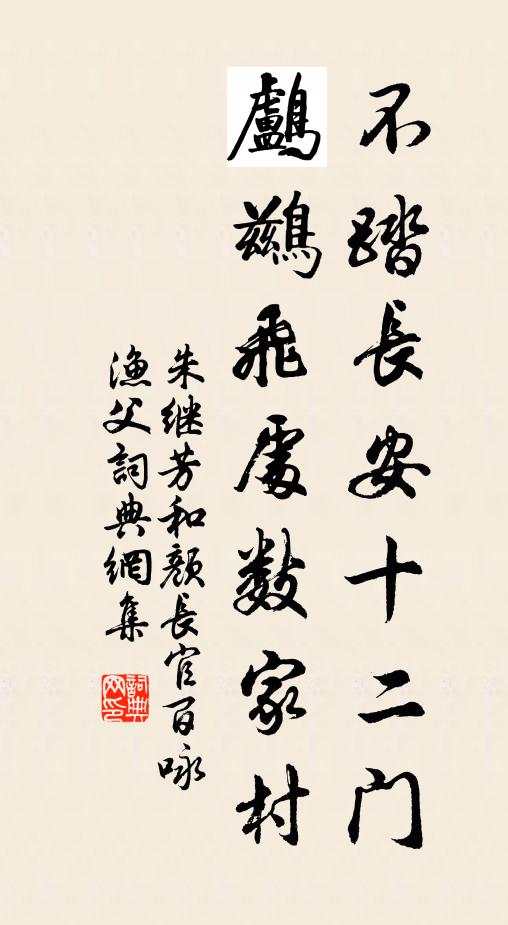 不踏長安十二门
鸕鷀飛處数家村
朱继芳和颜長官百咏
渔父詞典網集
詞典网印